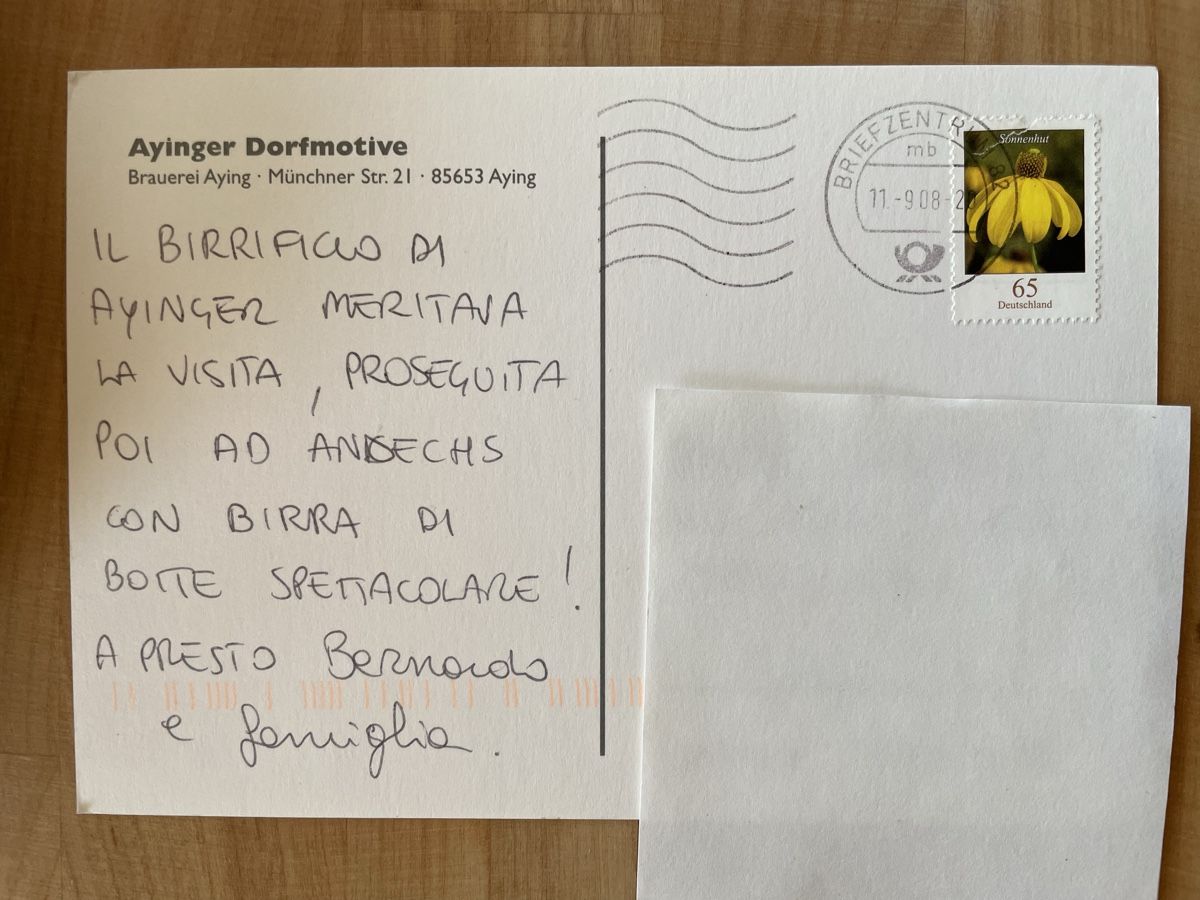 Ayinger Dorfmotive
Brauerei Aying · Münchner Str. 21 · 85653 Aying
IL BIRRIFICIO DI
AYINGER MERITAVA
LA VISITA, PROSEGUITA
POI AD ANDECHS
CON BIRRA DI
BOTTE SPETTACOLARE!
A PRESTO Bernardo
e famiglia.
BRIEFZENTRUM 82
mb
11.-9.08-20
Sonnenhut
65
Deutschland